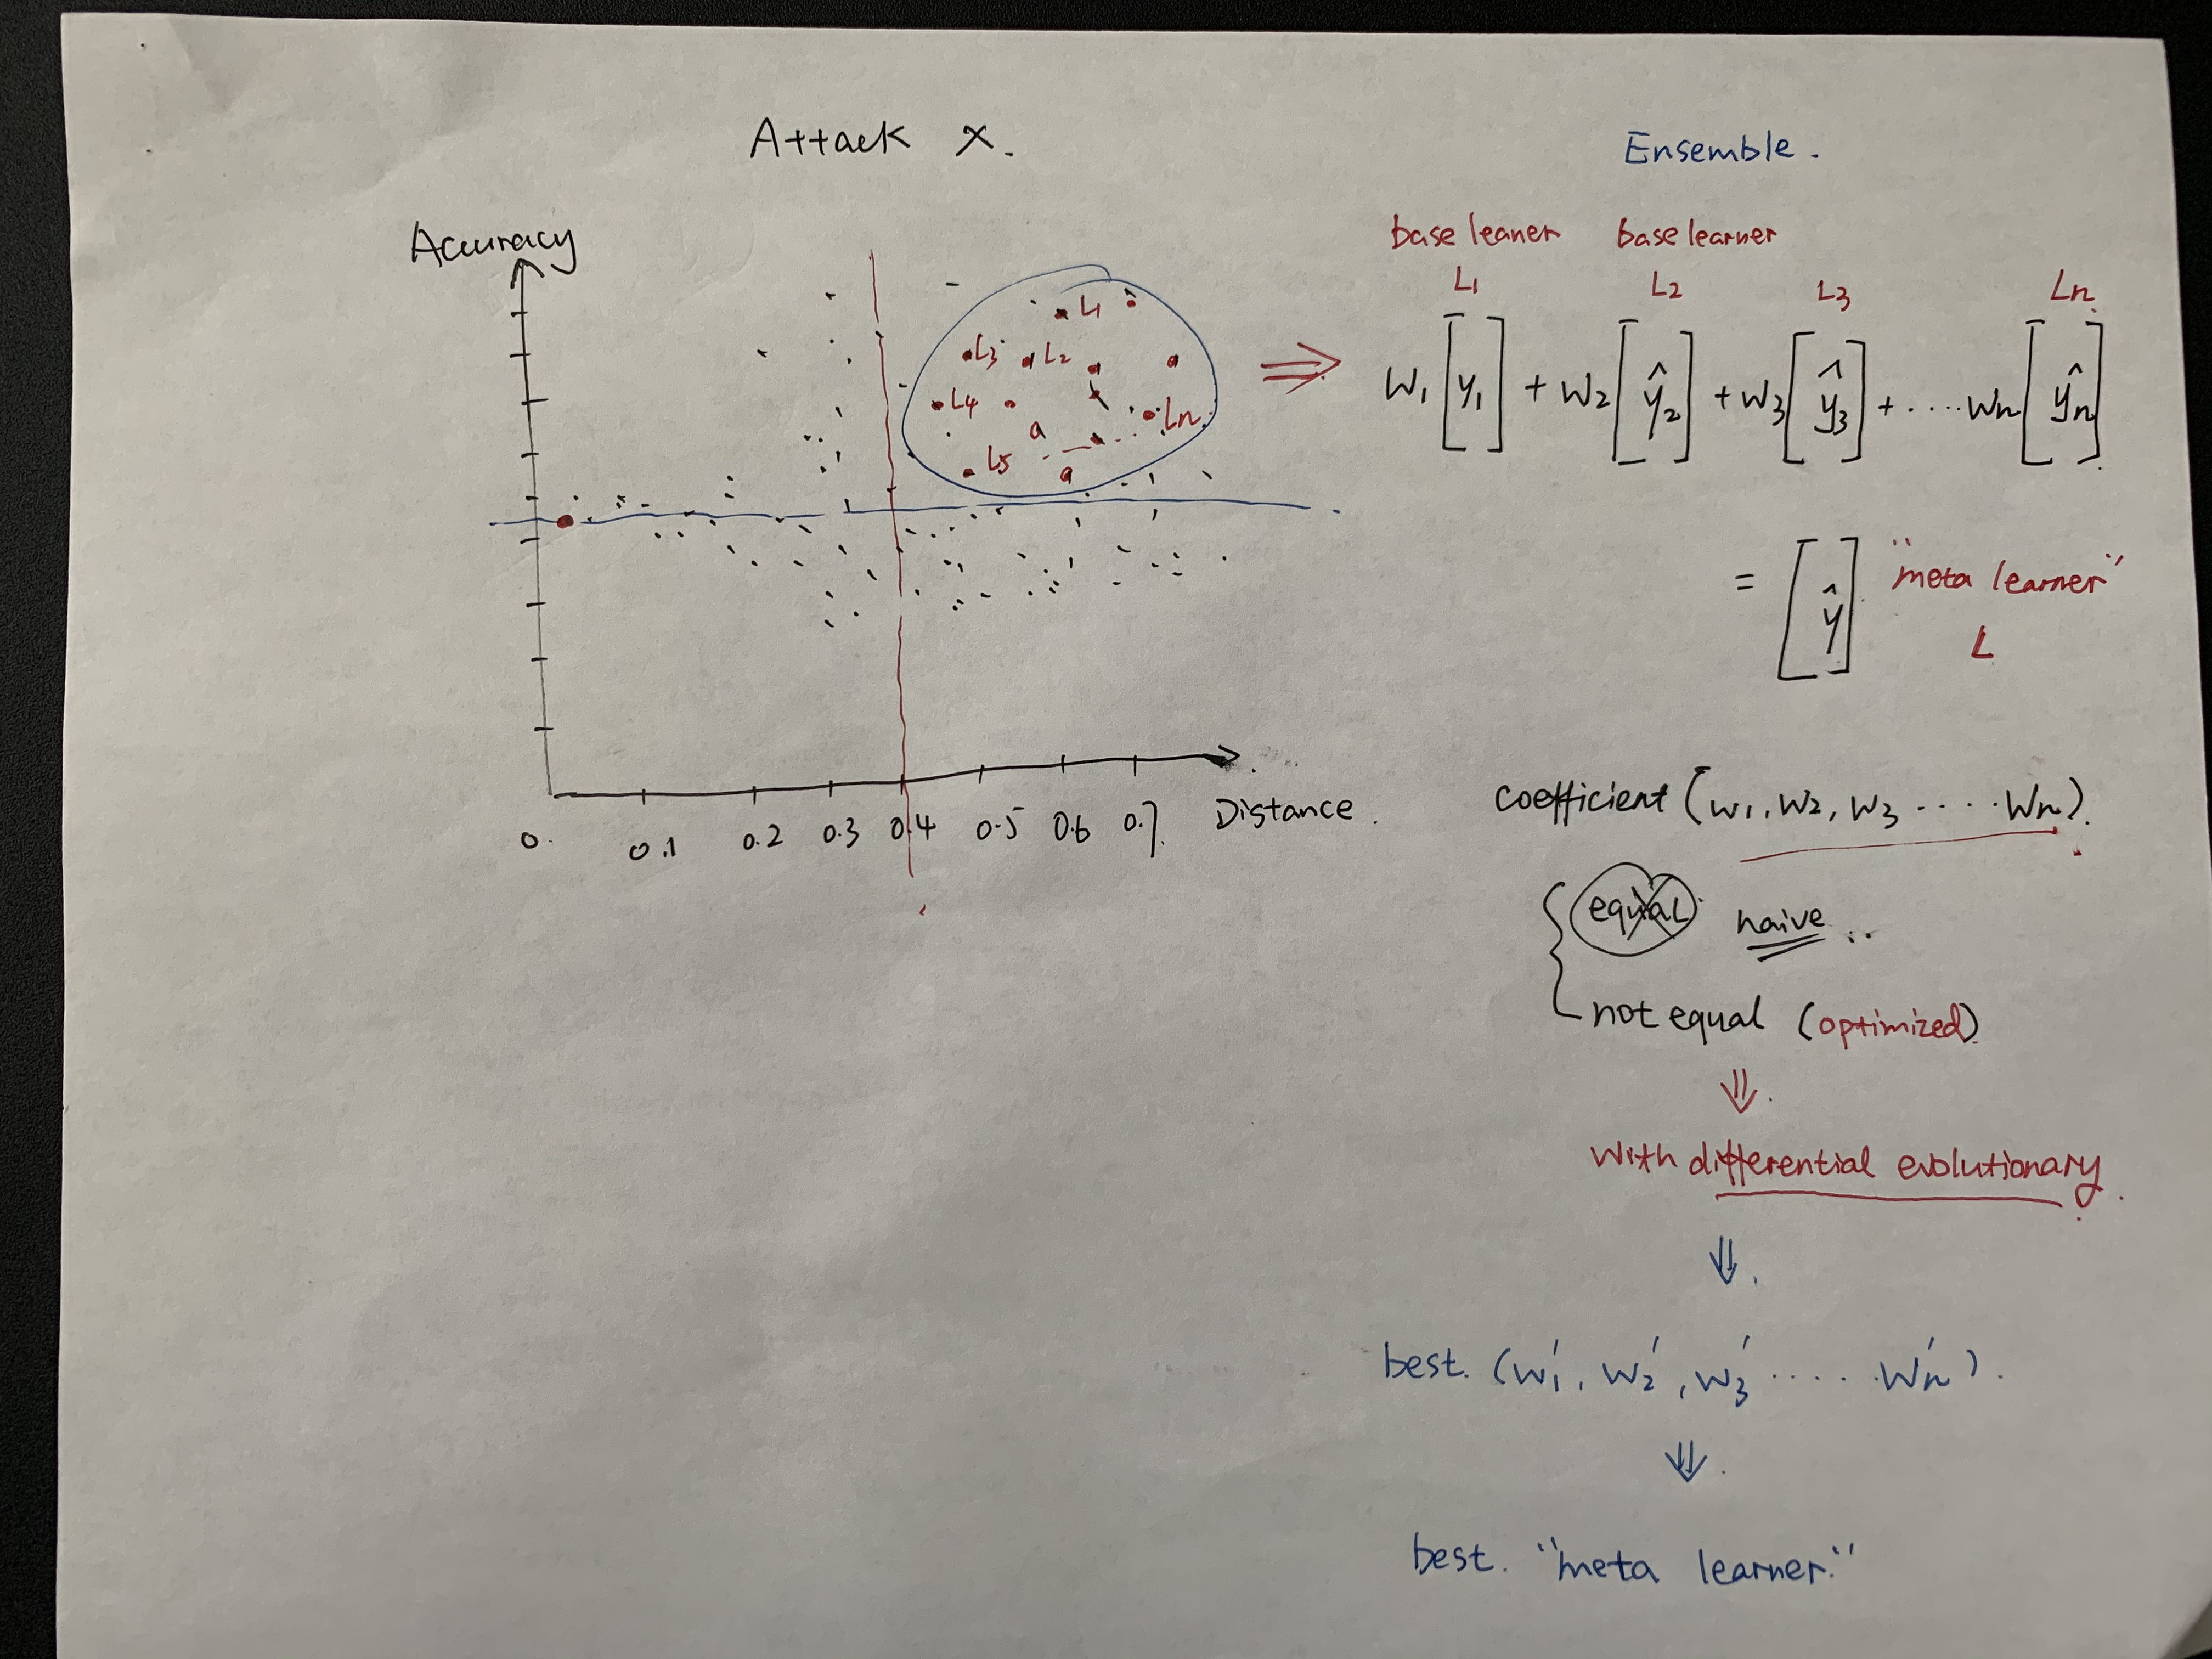 Attack X.
Accuracy
L1
L3 L2
L4 Ln
a
L5
a
0. 0.1 0.2 0.3 0.4 0.5 0.6 0.7 Distance.
Ensemble.
base leaner base learner
L1 L2 L3 Ln
W1 [y1] + W2 [ŷ2] + W3 [ŷ3] + .... Wn [ŷn]
= [ŷ] "meta learner"
L
coefficient (W1, W2, W3 ..... Wn).
equal naive ..
not equal (optimized)
⇓
with differential evolutionary.
⇓
best. (W1', W2', W3' ..... Wn').
⇓
best. "meta learner."